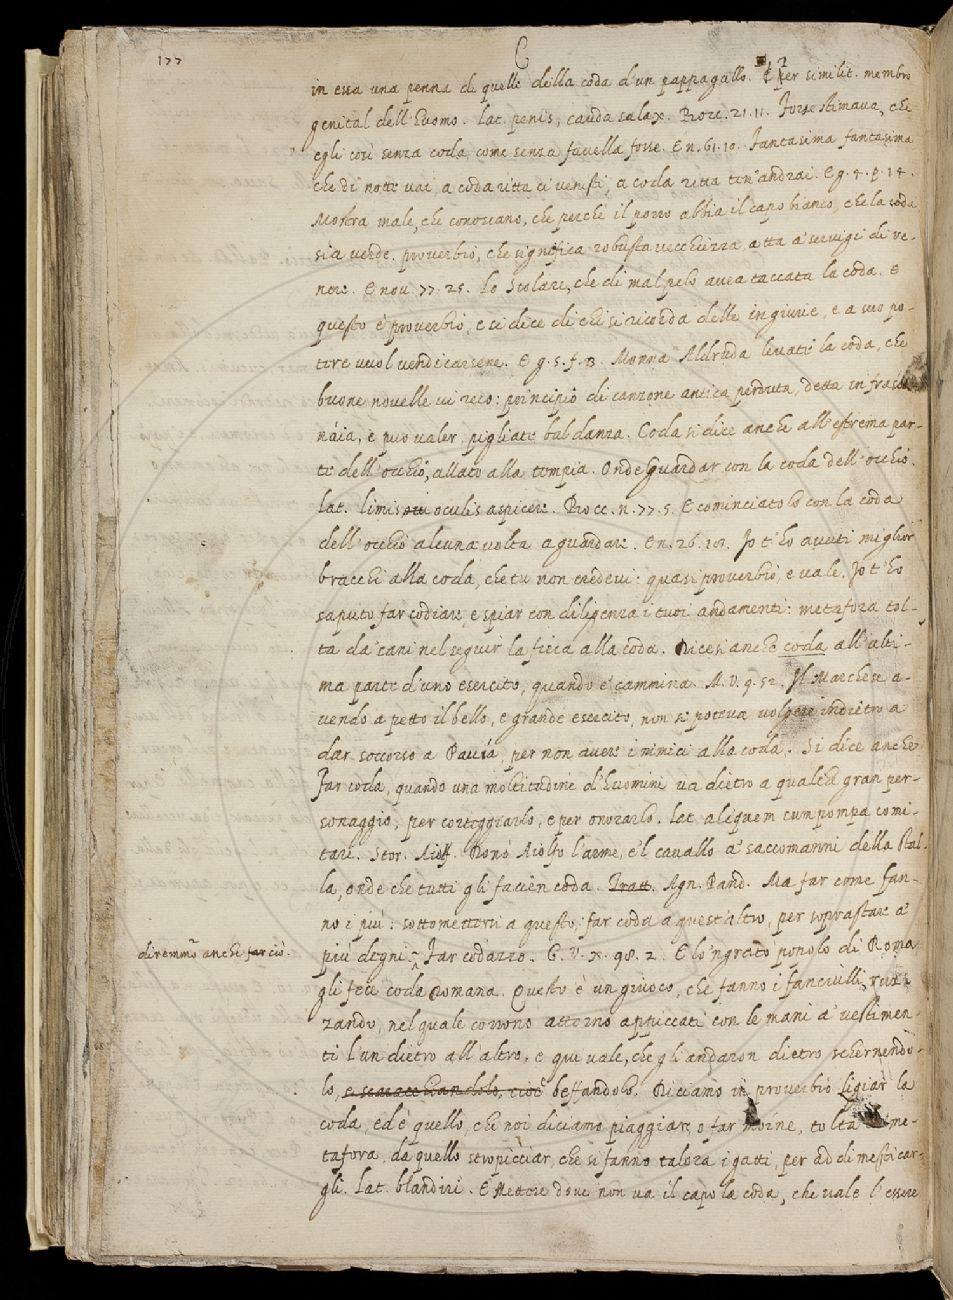 177
C
in essa una penna di quelle della coda d'un pappagallo. E per similit. membro
genital dell'huomo. Lat. penis, cauda salax. Bocc. 21. 11. Forse stimava, che
egli così senza coda, come senza favella fosse. E n. 61. 10. Fantasima fantasima
che di notte vai, a coda ritta ci venisti, a coda ritta ten'andrai. E g. 4. p. 14.
Mostra male, che conoscano, che perchè il porro abbia il capo bianco, che la coda
sia verde. proverbio, che significa robusta vecchiezza, atta a' servigi di Ve-
nere. E nov. 77. 25. Lo Scolare, che di mal pelo avea taccata la coda. E
questo è proverbio, e si dice di chi si ricorda delle ingiurie, e a suo po-
tere vuol vendicarsene. E g. 5. f. 3. Monna Aldruda levate la coda, che
buone novelle vi reco: principio di canzone antica perduta, detta in frasche
naia, e può valer, pigliate baldanza. Coda si dice anche all'estrema par-
te dell'occhio, allato alla tempia. Onde Guardar con la coda dell'occhio.
Lat. limis oculis aspicere. Bocc. n. 77. 5. E cominciatolo con la coda
dell'occhio alcuna volta a guardare. E n. 26. 10. Io t'ho avuti miglior
bracchi alla coda, che tu non credevi: quasi proverbio, e vale. Io t'ho
saputo far codiare, e spiar con diligenza i tuoi andamenti: metafora tol-
ta da' cani nel seguir la fiera alla coda. Dicesi anche coda all'ulti-
ma parte d'uno esercito, quando e' cammina. M. V. 9. 52. Il Marchese a-
vendo a petto il bello, e grande esercito, non si poteva volgere indietro a
dar soccorso a Pavia, per non avere i nimici alla coda. Si dice anche
Far coda, quando una moltitudine d'huomini va dietro a qualche gran per-
sonaggio, per corteggiarlo, e per onorarlo. Lat. aliquem cum pompa comi-
tari. Stor. Aiolf. Donò Aiolfo l'arme, e'l cavallo a' saccomanni della Stal-
la, onde che tutti gli facien coda. Tratt. Agn. Pand. Ma far come fan-
no i più: sottomettersi a questo; far coda a quest'altro, per soprastare a'
diremmo anche far ciò.
più degni. Far codazzo. G. V. X. 98. 2. E lo 'ngrato popolo di Roma
gli fece coda Romana. Questo è un giuoco, che fanno i fanciulli, ruz-
zando, nel quale corrono attorno appiccati con le mani a' vestimen-
ti l'un dietro all'altro, e qui vale, che gli andaron dietro schernendo-
lo, e scaracchiandolo, cioè beffandolo. Diciamo in proverbio Ligiar la
coda, ed è quello, che noi diciamo piaggiare, o far moine, tolta me-
tafora, da quello stropicciar, che si fanno talora i gatti, per addimesticar-
gli. Lat. blandiri. E Mettere dove non va il capo la coda, che vale l'essere